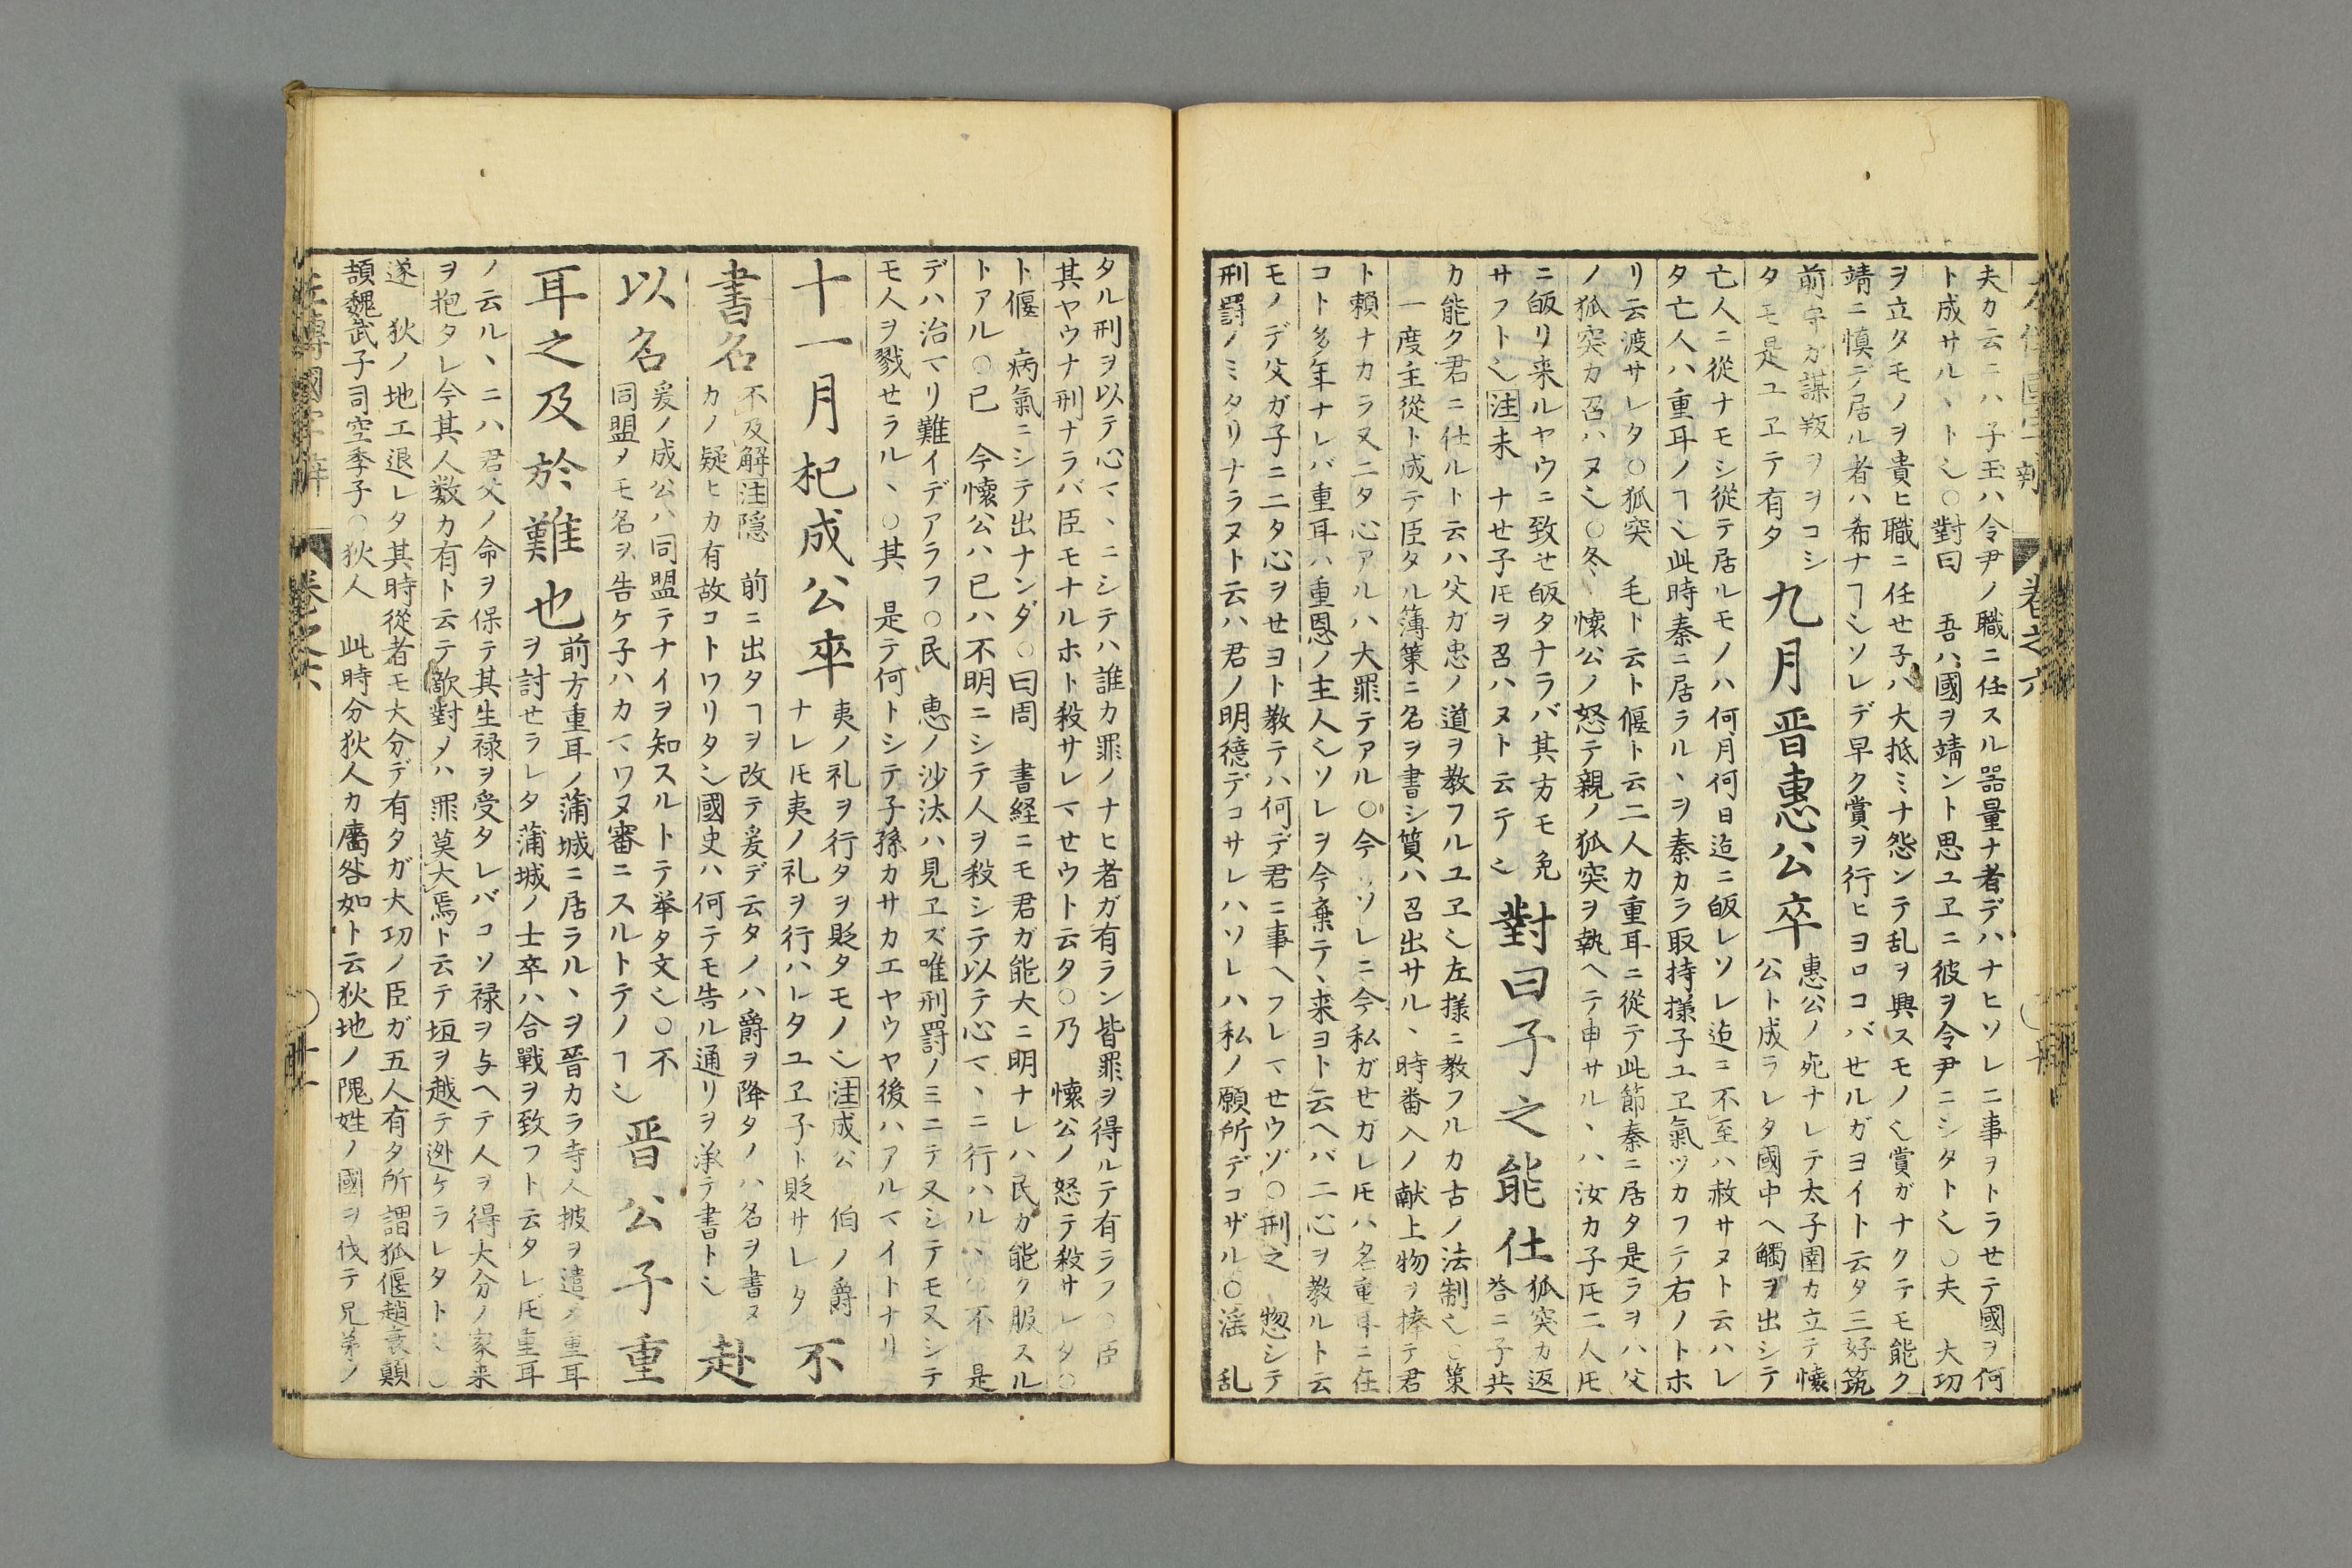 夫カ云ニハ子玉ハ令尹ノ職ニ任スル器量ナ者デハナヒソレニ事ヲトラせテ國ヲ何
ト成サル丶ト〆○對曰 吾ハ國ヲ靖ント思ユヱニ彼ヲ令尹ニシタト〆○夫 大功
ヲ立タモノヲ貴ヒ職ニ任せ子ハ大抵ミナ怨ンテ乱ヲ興スモノ〆賞ガナクテモ能ク
靖ニ慎デ居ル者ハ希ナヿ〆ソレデ早ク賞ヲ行ヒヨロコバせルガヨイト云タ三好筑
前守ガ謀叛ヲヲコシ
タモ是ユヱテ有タ
九月晋惠公卒
惠公ノ死ナレテ太子圉カ立テ懐
公ト成ラレタ國中ヘ觸ヲ出シテ
亡人ニ從ナモシ從テ居ルモノハ何月何日迠ニ皈レソレ迠ニ不至ハ赦サヌト云ハレ
タ亡人ハ重耳ノヿ〆此時秦ニ居ラル丶ヲ秦カラ取持様子ユヱ氣ヅカフテ右ノトホ
リ云渡サレタ○狐突 毛ト云ト偃ト云二人カ重耳ニ從テ此節秦ニ居タ是ラヲハ父
ノ狐突カ召ハヌ〆○冬 懐公ノ怒テ親ノ狐突ヲ執ヘテ申サル丶ハ汝カ子𪜈二人𪜈
ニ皈リ来ルヤウニ致せ皈タナラバ其方モ免
サフト〆注未 ナせ子𪜈ヲ召ハヌト云テ〆
對曰子之能仕
狐突カ返
荅ニ子共
カ能ク君ニ仕ルト云ハ父ガ忠ノ道ヲ教フルユヱ〆左様ニ教フルカ古ノ法制〆○策
一度主從ト成テ臣タル簿策ニ名ヲ書シ質ハ召出サル丶時番入ノ献上物ヲ捧テ君
ト頼ナカラ又ニタ心アルハ大罪テアル○今 ソレニ今私ガせガレ𪜈ハ名重耳ニ在
コト多年ナレバ重耳ハ重恩ノ主人〆ソレヲ今棄テ丶来ヨト云ヘバ二心ヲ教ルト云
モノデ父ガ子ニ二タ心ヲせヨト教テハ何デ君ニ事ヘフレマせウゾ○刑之 惣シテ
刑罰ノミタリナラヌト云ハ君ノ明德デコサレハソレハ私ノ願所デコザル○滛 乱
タル刑ヲ以テ心マ丶ニシテハ誰カ罪ノナヒ者ガ有ラン皆罪ヲ得ルテ有ラフ○臣
其ヤウナ刑ナラバ臣モナルホト殺サレマせウト云タ○乃 懐公ノ怒テ殺サレタ○
ト偃 病氣ニシテ出ナンダ○曰周 書経ニモ君ガ能大ニ明ナレハ民カ能ク服スル
トアル○已 今懐公ハ已ハ不明ニシテ人ヲ殺シテ以テ心マ丶ニ行ハル丶 不 是
デハ治マリ難イデアラフ○民 惠ノ沙汰ハ見ヱズ唯刑罰ノミニテ又シテモ又シテ
モ人ヲ戮せラル丶○其 是テ何トシテ子孫カサカエヤウヤ後ハアルマイトナリ
十一月杞成公卒
夷ノ礼ヲ行タヲ貶タモノ〆注成公 伯ノ爵
ナレ𪜈夷ノ礼ヲ行ハレタユヱ子ト貶サレタ
不
書名
不及解注隠 前ニ出タヿヲ改テ爰デ云タノハ爵ヲ降タノハ名ヲ書ヌ
カノ疑ヒカ有故コトワリタ〆國史ハ何テモ告ル通リヲ承テ書ト〆
赴
以名
爰ノ成公ハ同盟テナイヲ知スルトテ挙タ文〆○不
同盟ノモ名ヲ告ケ子ハカマワヌ審ニスルトテノヿ〆
晋公子重
耳之及於難也
前方重耳ノ蒲城ニ居ラル丶ヲ晋カラ寺人披ヲ遣メ重耳
ヲ討せラレタ蒲城ノ士卒ハ合戰ヲ致フト云タレ𪜈重耳
ノ云ル丶ニハ君父ノ命ヲ保テ其生禄ヲ受タレバコソ禄ヲ与ヘテ人ヲ得大分ノ家来
ヲ抱タレ今其人数カ有ト云テ敵對メハ罪莫大焉ト云テ垣ヲ越テ迯ケラレタト〆○
遂 狄ノ地エ退レタ其時從者モ大分デ有タガ大功ノ臣ガ五人有タ所謂狐偃趙衰顛
頡魏武子司空季子○狄人 此時分狄人カ廧咎如ト云狄地ノ隗姓ノ國ヲ伐テ兄弟ノ
左傳國字辯 卷之六